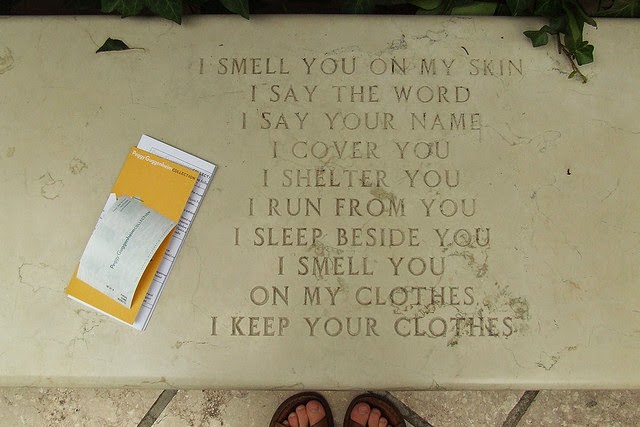 I SMELL YOU ON MY SKIN
I SAY THE WORD
I SAY YOUR NAME
I COVER YOU
I SHELTER YOU
I RUN FROM YOU
I SLEEP BESIDE YOU
I SMELL YOU
ON MY CLOTHES
I KEEP YOUR CLOTHES
Peggy Guggenheim COLLECTION
Peggy Guggenheim COLLECTION